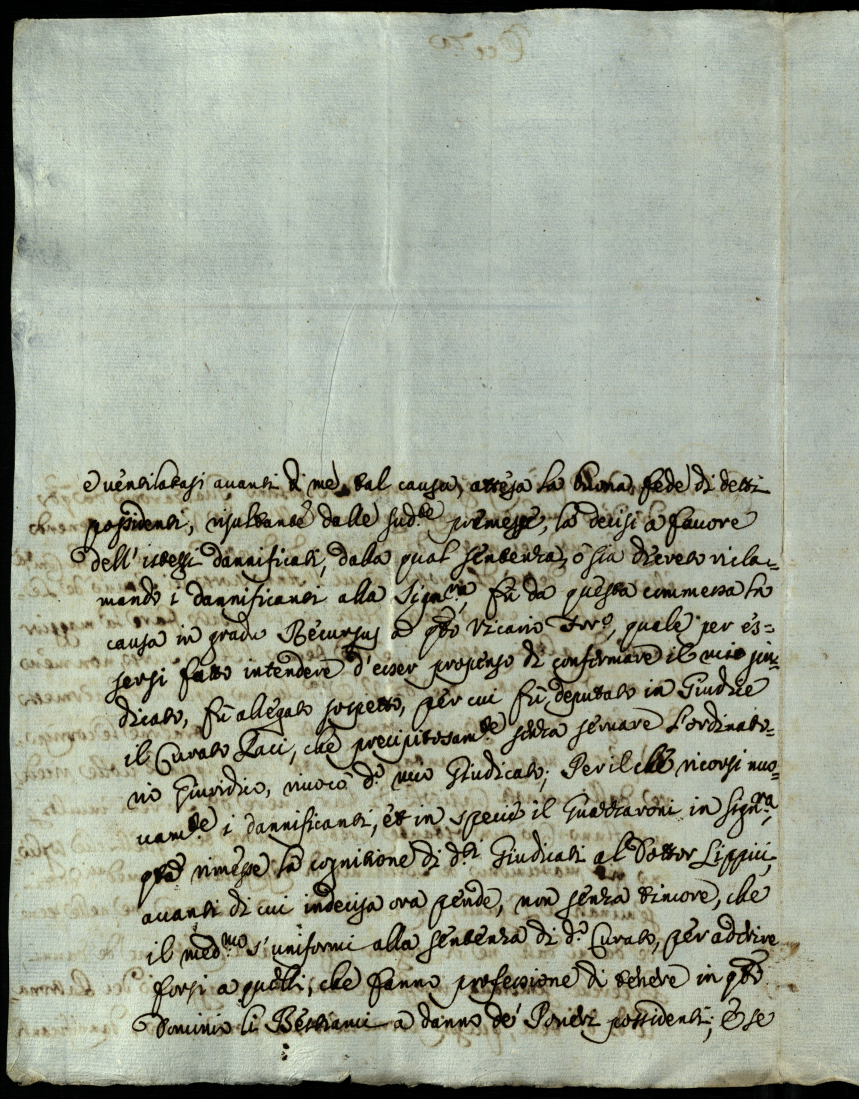 e ventilatasi avanti di me tal causa, attesa la buona fede di detti
possidenti, risultante dalle sud.te premesse, la decisi a favore
dell' istessi dannificati, dalla qual sentenza, ò sia decreto recla-
mando i dannificanti alla Sign.ria, fù da questa commessa la
causa in gradu Recursus a q.to Vicario For.o, quale per es-
sersi fatto intendere d'esser propenso di confermare il mio giu-
dicato, fù allegato sospetto, per cui fù deputato in Giudice
il Curato Laci, che precipitosam.te senza servare l'ordinato-
rio Giuridico, rivocò d.o mio Giudicato; Per il che ricorsi nuo-
vam.te i dannificanti, et in specie il Guazzaroni in Sign.ria,
q.ta rimesse la cognitione di d.ti Giudicati al Dottor Lippici,
avanti di cui indecisa ora pende, non senza timore, che
il med.mo s'uniformi alla sentenza di d.o Curato, per aderire
forsi a quelli, che fanno professione di tenere in q.to
Dominio li Bestiami a danno de' Poveri possidenti; E se